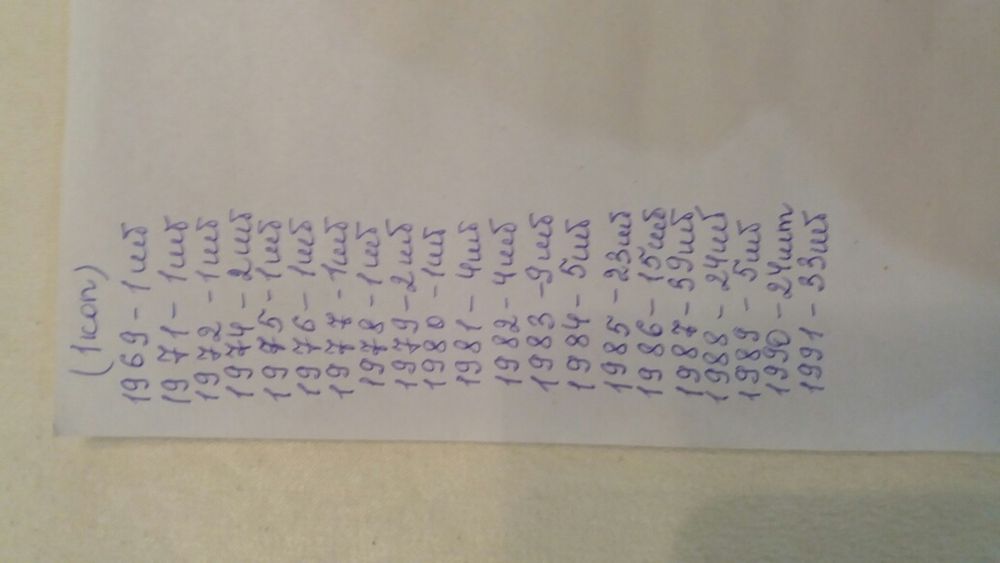 (1коп)
1969 - 1шт
1971 - 1шт
1972 - 1шт
1974 - 2шт
1975 - 1шт
1976 - 1шт
1977 - 1шт
1978 - 1шт
1979 - 2шт
1980 - 1шт
1981 - 4шт
1982 - 4шт
1983 - 9шт
1984 - 5шт
1985 - 23шт
1986 - 15шт
1987 - 39шт
1988 - 24шт
1989 - 5шт
1990 - 24шт
1991 - 33шт